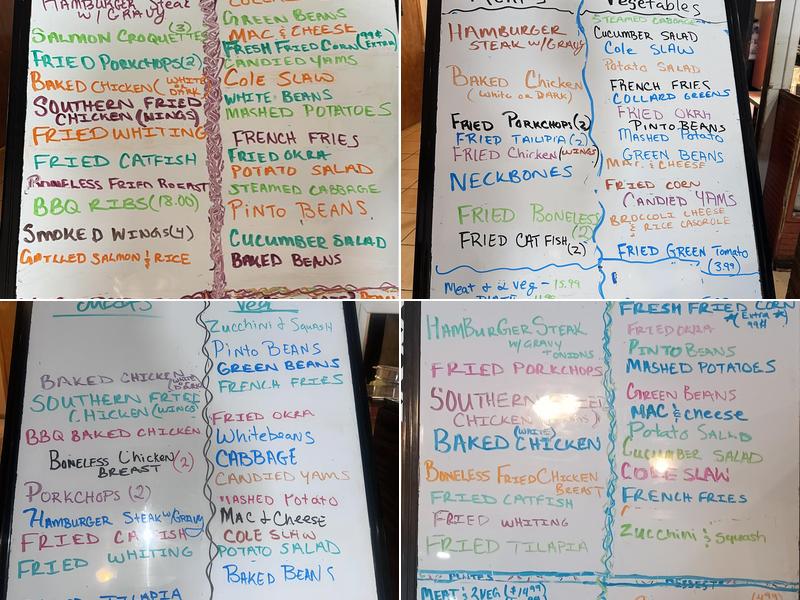 HAMBURGER STEAK
W/ GRAVY
SALMON CROQUETTES (3)
FRIED PORKCHOPS (2)
BAKED CHICKEN (WHITE
OR DARK)
SOUTHERN FRIED
CHICKEN (WINGS)
FRIED WHITING
FRIED CATFISH
BONELESS FRIED BREAST
BBQ RIBS (18.00)
SMOKED WINGS (4)
GRILLED SALMON & RICE
GREEN BEANS
MAC & CHEESE
FRESH FRIED CORN (99¢ EXTRA)
CANDIED YAMS
COLE SLAW
WHITE BEANS
MASHED POTATOES
FRENCH FRIES
FRIED OKRA
POTATO SALAD
STEAMED CABBAGE
PINTO BEANS
CUCUMBER SALAD
BAKED BEANS
HAMBURGER
STEAK W/GRAVY
BAKED CHICKEN
(WHITE OR DARK)
FRIED PORKCHOPS (2)
FRIED TAILIPIA (2)
FRIED CHICKEN (WINGS)
NECKBONES
FRIED BONELESS
(2)
FRIED CAT FISH (2)
MEAT & 2 VEG - 15.99
Vegetables
STEAMED CABBAGE
CUCUMBER SALAD
COLE SLAW
POTATO SALAD
FRENCH FRIES
COLLARD GREENS
FRIED OKRA
PINTO BEANS
MASHED POTATO
GREEN BEANS
MAC. & CHEESE
FRIED CORN
CANDIED YAMS
BROCCOLI CHEESE
& RICE CASOROLE
FRIED GREEN TOMATO
(3.99)
MEATS
BAKED CHICKEN (WHITE
DARK)
SOUTHERN FRIED
CHICKEN (WINGS)
BBQ BAKED CHICKEN
BONELESS CHICKEN (2)
BREAST
PORKCHOPS (2)
HAMBURGER STEAK W/GRAVY
FRIED CATFISH
FRIED WHITING
TILAPIA
Veg
ZUCCHINI & SQUASH
PINTO BEANS
GREEN BEANS
FRENCH FRIES
FRIED OKRA
Whitebeans
CABBAGE
CANDIED YAMS
MASHED POTATO
MAC & CHEESE
COLE SLAW
POTATO SALAD
BAKED BEANS
HAMBURGER STEAK
W/ GRAVY
+ ONIONS
FRIED PORKCHOPS
SOUTHERN FRIED
CHICKEN
(WHITE)
BAKED CHICKEN
BONELESS FRIED CHICKEN
BREAST
FRIED CATFISH
FRIED WHITING
FRIED TILAPIA
MEAT & 2 VEG ($14.99)
FRESH FRIED CORN
*(Extra 99¢)*
FRIED OKRA
PINTO BEANS
MASHED POTATOES
GREEN BEANS
MAC & cheese
POTATO SALAD
CUCUMBER SALAD
COLE SLAW
FRENCH FRIES
ZUCCHINI & SQUASH